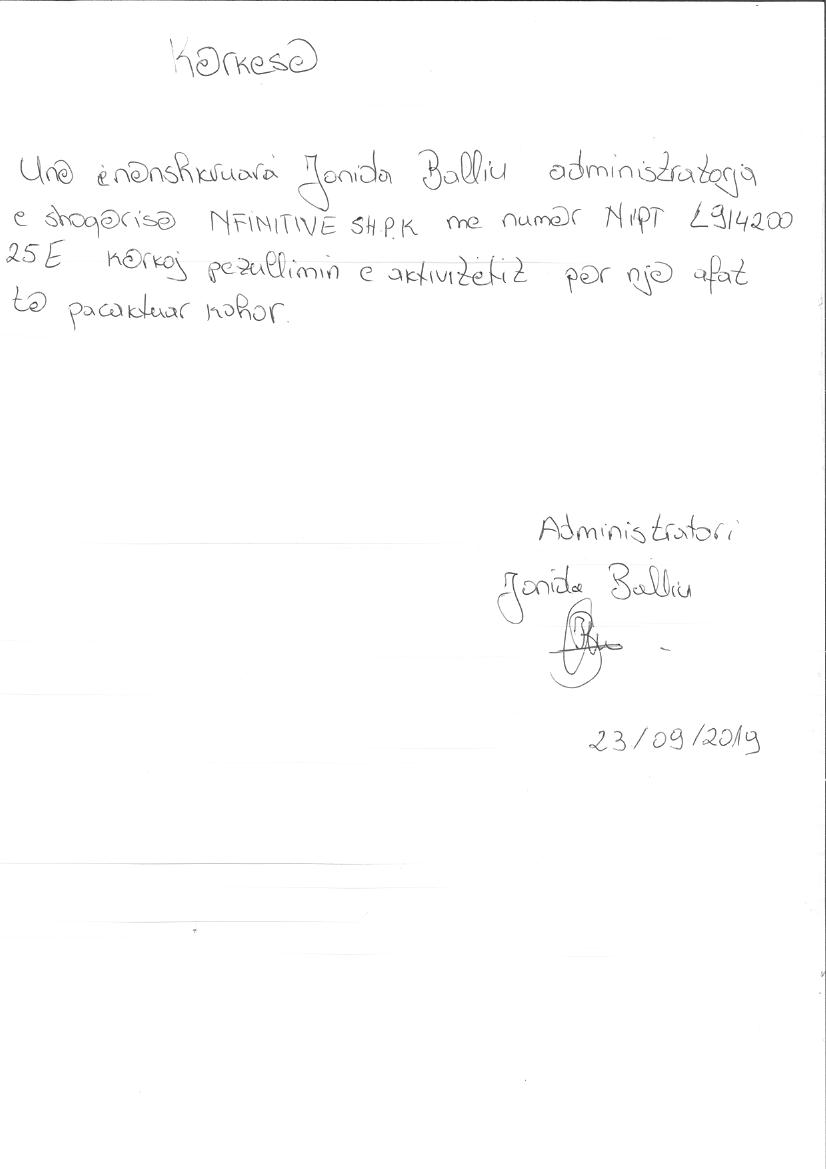 Kërkesë
Unë ënënshkruara Jonida Balliu administratorja
e shoqërisë NFINITIVE SH.P.K me numër NIPT L914200
25E kërkoj pezullimin e aktivitetit për një afat
të pacaktuar kohor.
Administratori
Jonida Balliu
23/09/2019